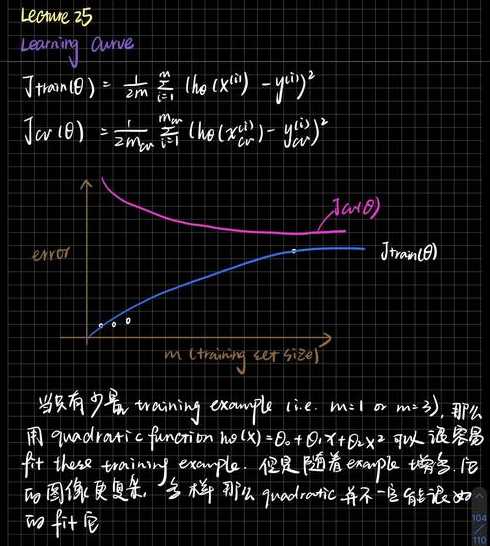 Lecture 25
Learning Curve
Jtrain(θ) = 1/2m Σ_{i=1}^{m} (hθ(x^(i)) - y^(i))²
Jcv(θ) = 1/2mcv Σ_{i=1}^{mcv} (hθ(xcv^(i)) - ycv^(i))²
Jcv(θ)
error
Jtrain(θ)
m (training set size)
当只有少量 training example (i.e. m=1 or m=3), 那么
用 quadratic function hθ(x)=θ₀+θ₁x+θ₂x² 可以很容易
fit these training example. 但是随着 example 增多, 它
的图像更复杂, 多样 那么 quadratic 并不一定能很好
的 fit 它
104
110